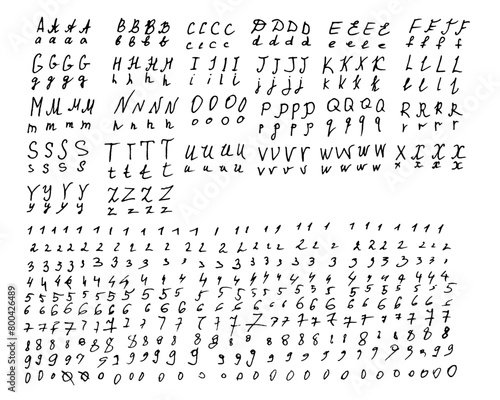 A A A A B B B B C C C C D D D D E E E E F F F F
a a a a b b b b c c c c d d d d e e e e f f f f
G G G G H H H H I I I I J J J J K K K K L L L L
g g g g h h h h i i i i j j j j k k k k l l l l
M M M M N N N N O O O O P P P P Q Q Q Q R R R R
m m m m n n n n o o o o p p p p q q q q r r r r
S S S S T T T T U U U U V V V V W W W W X X X X
s s s s t t t t u u u u v v v v w w w w x x x x
Y Y Y Y Z Z Z Z
y y y y z z z z
1 1 1 1 1 1 1 1 1 1 1 1 1 1 1 1 1 1 1 1 1 1 1 1
2 2 2 2 2 2 2 2 2 2 2 2 2 2 2 2 2 2 2 2 2 2 2 2
3 3 3 3 3 3 3 3 3 3 3 3 3 3 3 3 3 3 3 3 3 3 3 3
4 4 4 4 4 4 4 4 4 4 4 4 4 4 4 4 4 4 4 4 4 4 4 4
5 5 5 5 5 5 5 5 5 5 5 5 5 5 5 5 5 5 5 5 5 5 5 5
6 6 6 6 6 6 6 6 6 6 6 6 6 6 6 6 6 6 6 6 6 6 6 6
7 7 7 7 7 7 7 7 7 7 7 7 7 7 7 7 7 7 7 7 7 7 7 7
8 8 8 8 8 8 8 8 8 8 8 8 8 8 8 8 8 8 8 8 8 8 8 8
9 9 9 9 9 9 9 9 9 9 9 9 9 9 9 9 9 9 9 9 9 9 9 9
0 0 0 0 0 0 0 0 0 0 0 0 0 0 0 0 0 0 0 0 0 0 0 0
Adobe Stock
800426489